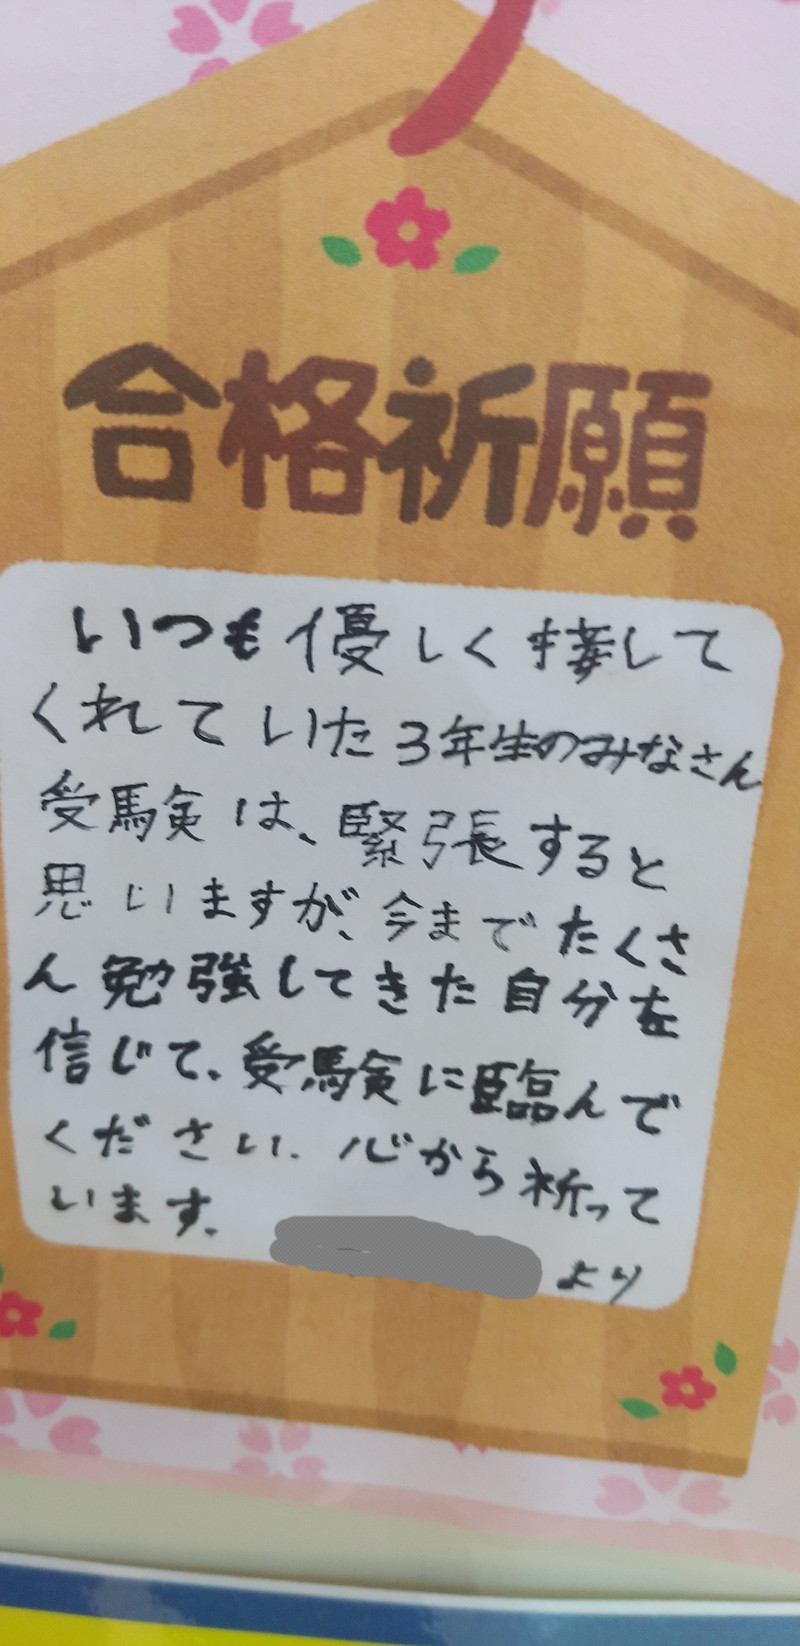 合格祈願
いつも優しく接して
くれていた3年生のみなさん
受験は、緊張すると
思いますが、今までたくさ
ん勉強してきた自分を
信じて、受験に臨んで
ください。心から祈って
います。
より